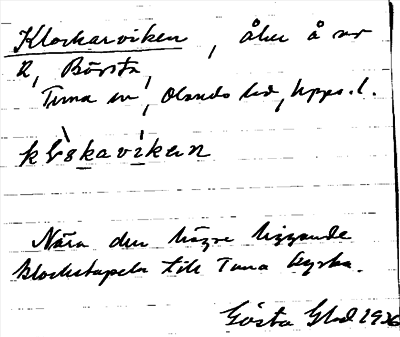 Klockarviken, åker å nr
2, Börsta,
Tuna sn, Olands hd, Upps. l.
klòskavìken
Nära den högre liggande
klockstapeln till Tuna kyrka.
Gösta Glad 1926